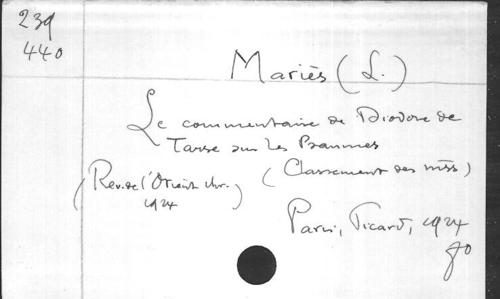 239
440
Mariès (L.)
Le commentaire de Diodore de
Tarse sur les Psaumes
(Rev. de l'Orient chr.
1924)
(Classement des mss)
Paris, Picard, 1924
8º